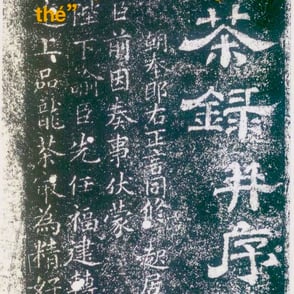 thé”
茶録并序
朝奉郎右正言同修起居
臣前因奏事伏蒙
陛下諭臣先任福建轉
上品龍茶最為精好